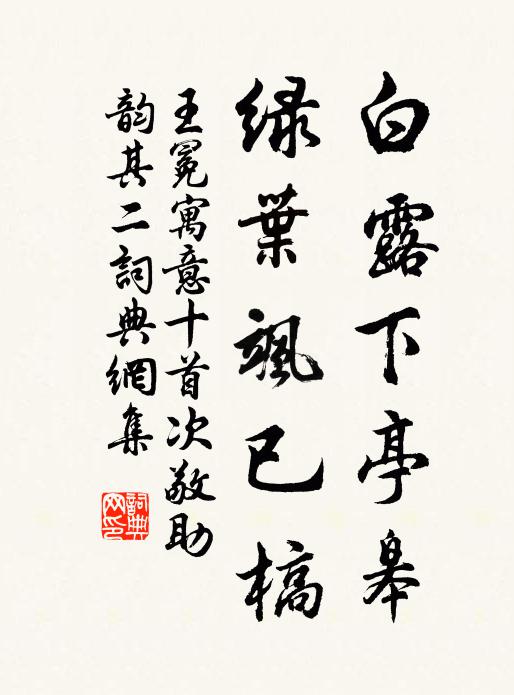 白露下亭皋
緑葉颯已槁
王冕寓意十首次敬助
韵其二詞典網集
詞典
网印